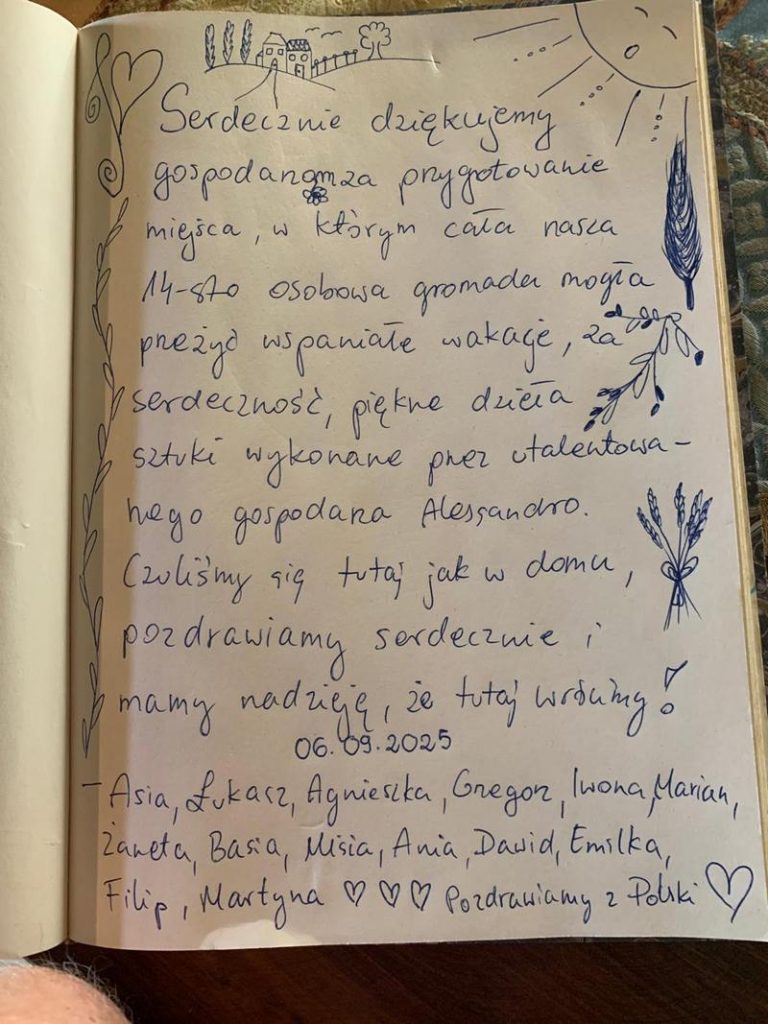 Serdecznie dziękujemy
gospodarzom za przygotowanie
miejsca, w którym cała nasza
14-sto osobowa gromada mogła
przeżyć wspaniałe wakacje, za
serdeczność, piękne dzieła
sztuki wykonane przez utalentowa-
nego gospodarza Alessandro.
Czuliśmy się tutaj jak w domu,
pozdrawiamy serdecznie i
mamy nadzieję, że tutaj wrócimy!
06.09.2025
- Asia, Łukasz, Agnieszka, Grzegorz, Iwona, Marian,
Żaneta, Basia, Misia, Ania, Dawid, Emilka,
Filip, Martyna ♡ ♡ ♡ Pozdrawiamy z Polski ♡